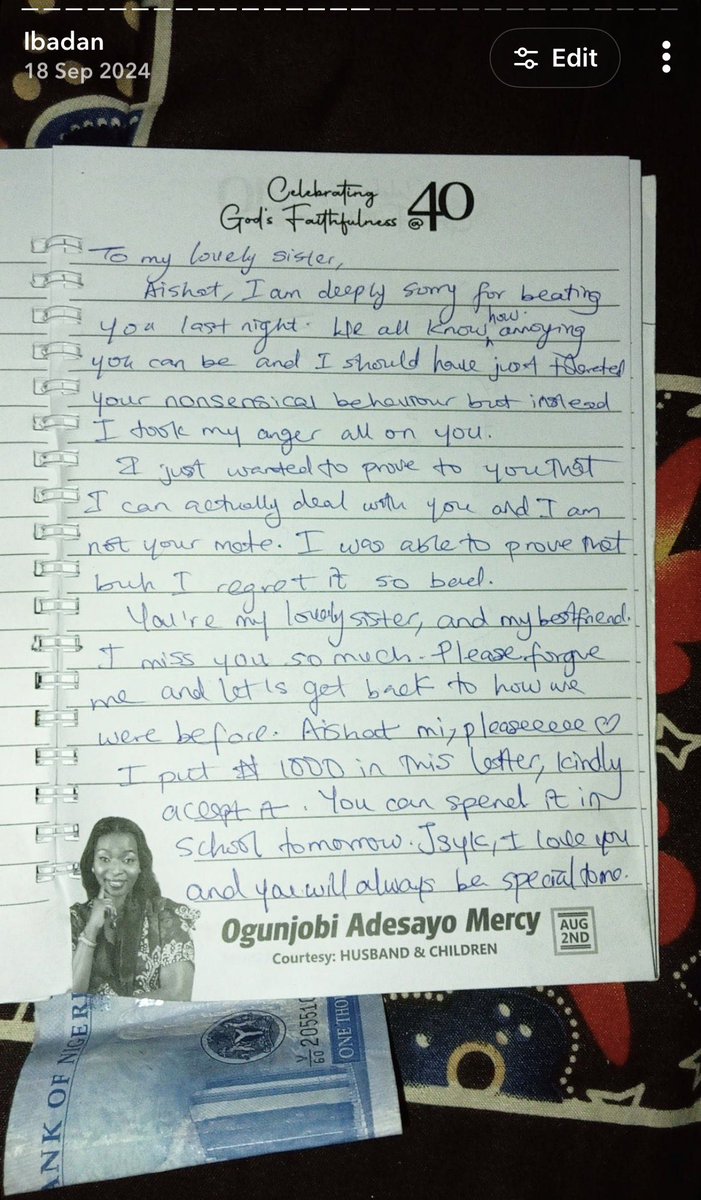 Ibadan
18 Sep 2024
Edit
Celebrating
God's Faithfulness @40
To my lovely sister,
Aishat, I am deeply sorry for beating
you last night. We all know how annoying
you can be and I should have just tolerated
your nonsensical behaviour but instead
I took my anger all on you.
I just wanted to prove to you that
I can actually deal with you and I am
not your mate. I was able to prove that
but I regret it so bad.
You're my lovely sister, and my bestfriend.
I miss you so much. Please forgive
me and let's get back to how we
were before. Aishat mi, pleaseeeee ♡
I put ₦ 1000 in this letter, kindly
accept it. You can spend it in
school tomorrow. Jsyk, I love you
and you will always be special to me.
Ogunjobi Adesayo Mercy
AUG
2ND
Courtesy: HUSBAND & CHILDREN
ANK OF NIGERI
V/60 205510
ONE THO